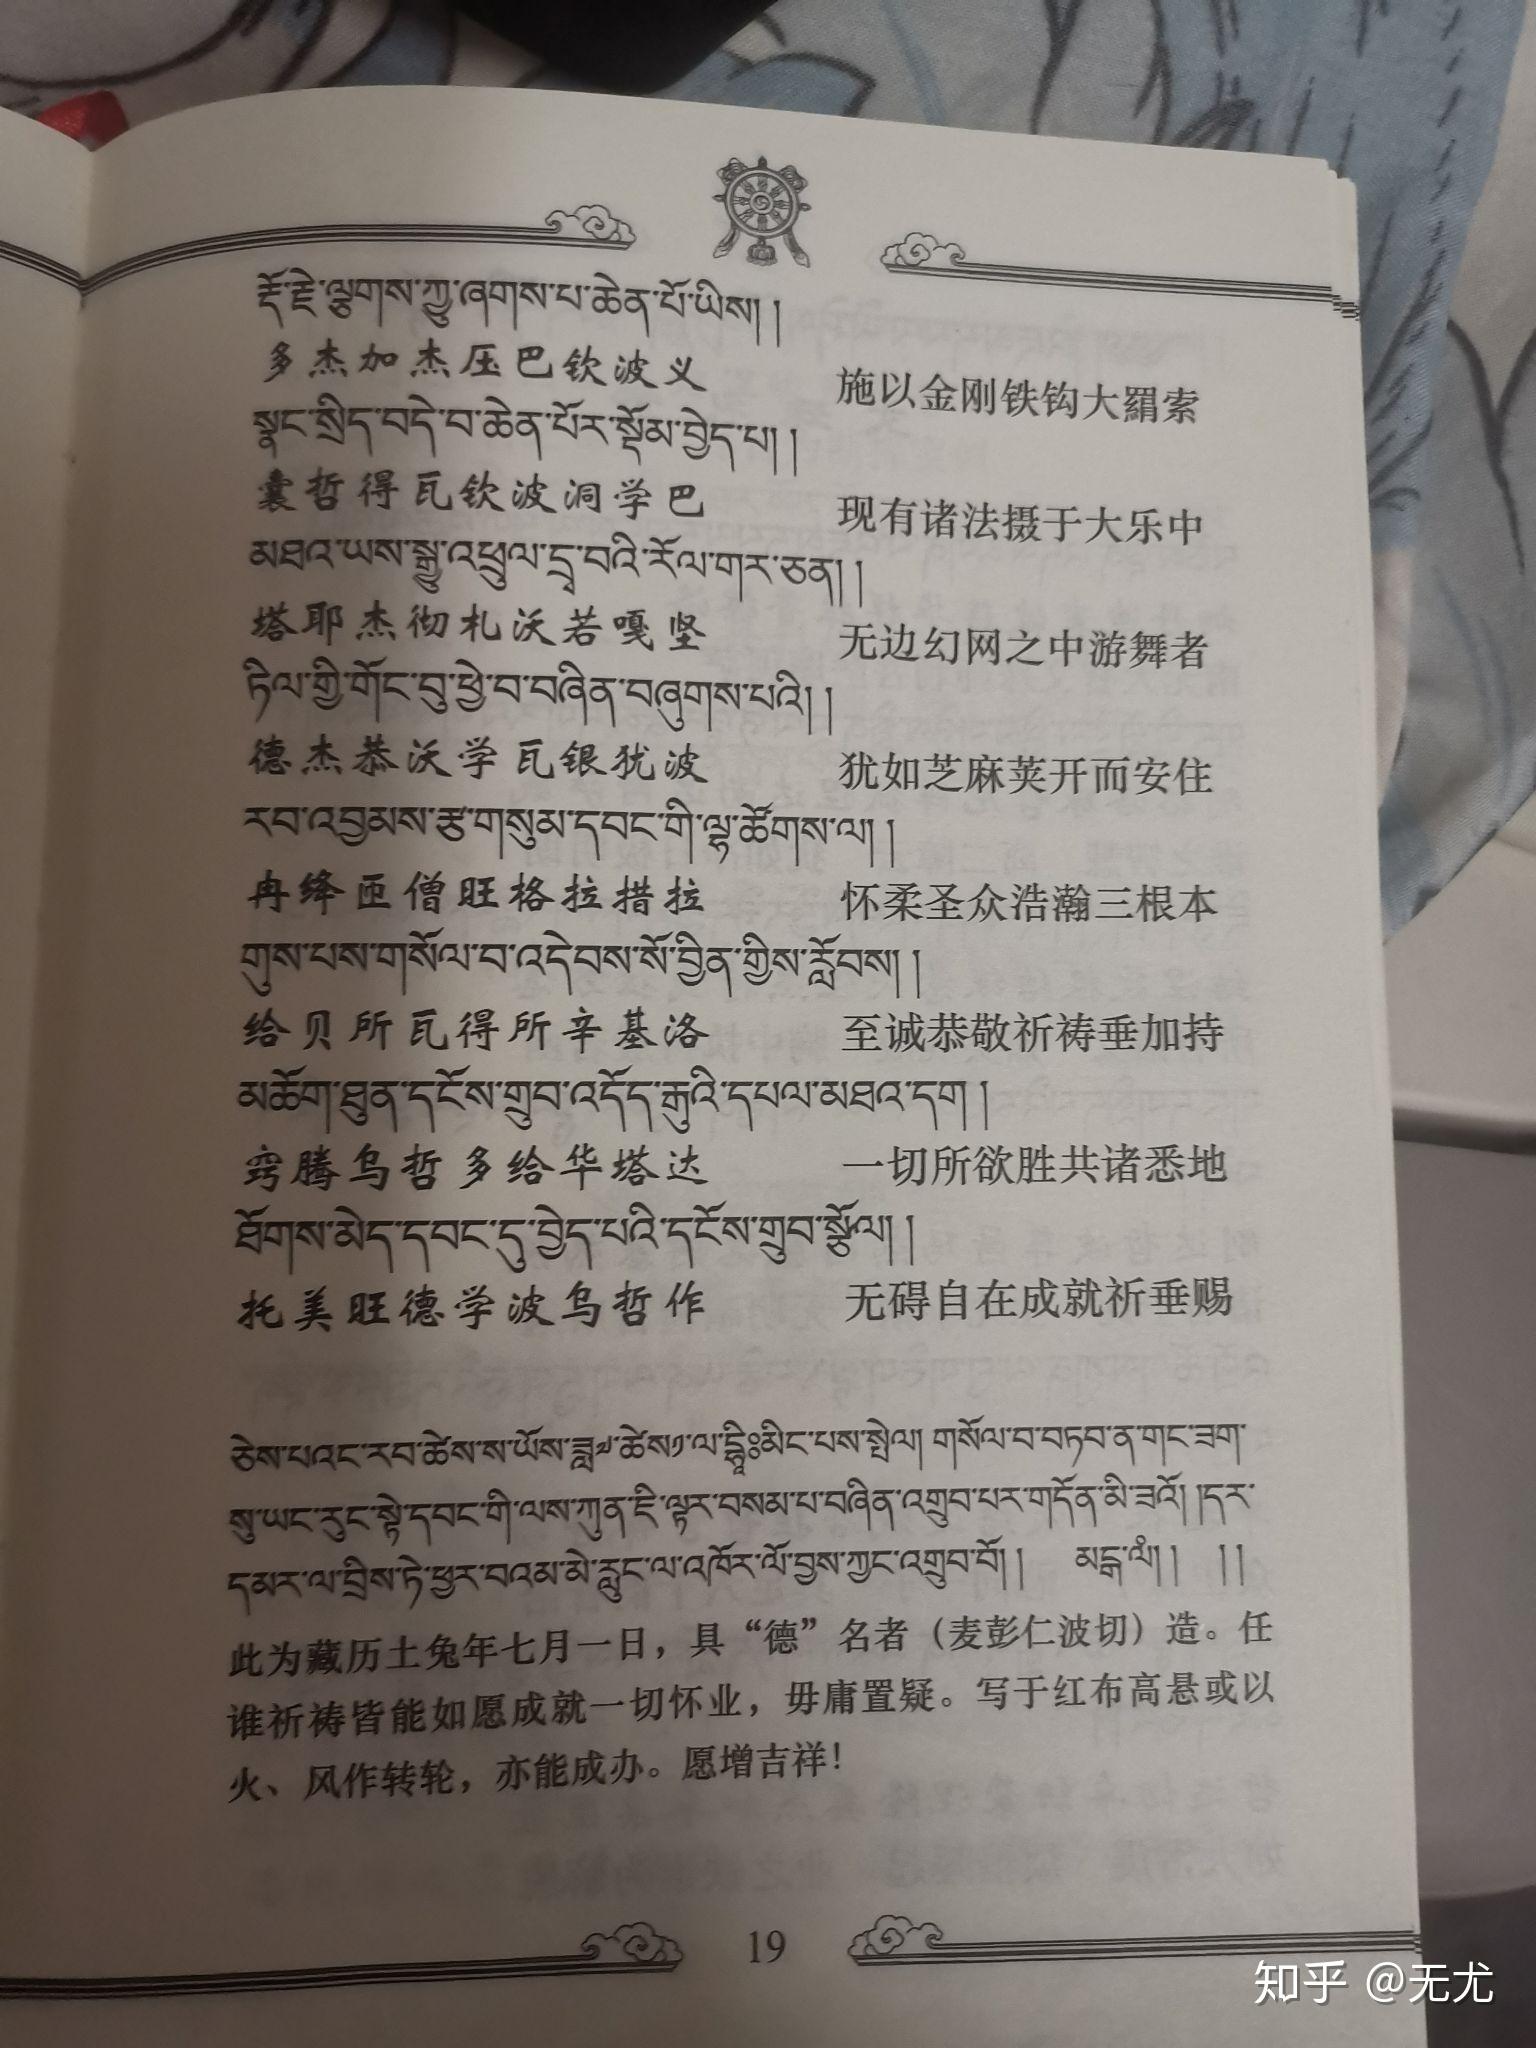 རྡོ་རྗེ་ལྕགས་ཀྱུ་ཞགས་པ་ཆེན་པོ་ཡིས། །
多杰加杰压巴钦波义
施以金刚铁钩大羂索
སྣང་སྲིད་བདེ་བ་ཆེན་པོར་སྡོམ་བྱེད་པ། །
囊哲得瓦钦波洞学巴
现有诸法摄于大乐中
མཐའ་ཡས་སྒྱུ་འཕྲུལ་དྲྭ་བའི་རོལ་གར་ཅན། །
塔耶杰彻札沃若嘎坚
无边幻网之中游舞者
ཏིལ་གྱི་གོང་བུ་ཕྱེ་བ་བཞིན་བཞུགས་པའི། །
德杰恭沃学瓦银犹波
犹如芝麻荚开而安住
རབ་འབྱམས་རྩ་གསུམ་དབང་གི་ལྷ་ཚོགས་ལ། །
冉绛匝僧旺格拉措拉
怀柔圣众浩瀚三根本
གུས་པས་གསོལ་བ་འདེབས་སོ་བྱིན་གྱིས་རློབས། །
给贝所瓦得所辛基洛
至诚恭敬祈祷垂加持
མཆོག་ཐུན་དངོས་གྲུབ་འདོད་རྒུའི་དཔལ་མཐའ་དག །
窍腾乌哲多给华塔达
一切所欲胜共诸悉地
ཐོགས་མེད་དབང་དུ་བྱེད་པའི་དངོས་གྲུབ་སྩོལ། །
托美旺德学波乌哲作
无碍自在成就祈垂赐
ཅེས་པའང་རབ་ཚེས་ས་ཡོས་ཟླ༧ཚེས༡ལ་དྷཱིཿམིང་པས་སྤེལ། གསོལ་བ་བཏབ་ན་གང་ཟག་
སུ་ཡང་རུང་སྟེ་དབང་གི་ལས་ཀུན་ཇི་ལྟར་བསམ་པ་བཞིན་འགྲུབ་པར་གདོན་མི་ཟའོ། །དར་
དམར་ལ་བྲིས་ཏེ་ཕྱར་བའམ་མེ་རླུང་ལ་འཁོར་ལོ་བྱས་ཀྱང་འགྲུབ་བོ། ། མངྒ་ལཾ། ། །།
此为藏历土兔年七月一日，具“德”名者（麦彭仁波切）造。任
谁祈祷皆能如愿成就一切怀业，毋庸置疑。写于红布高悬或以
火、风作转轮，亦能成办。愿增吉祥！
19
知乎 @无尤